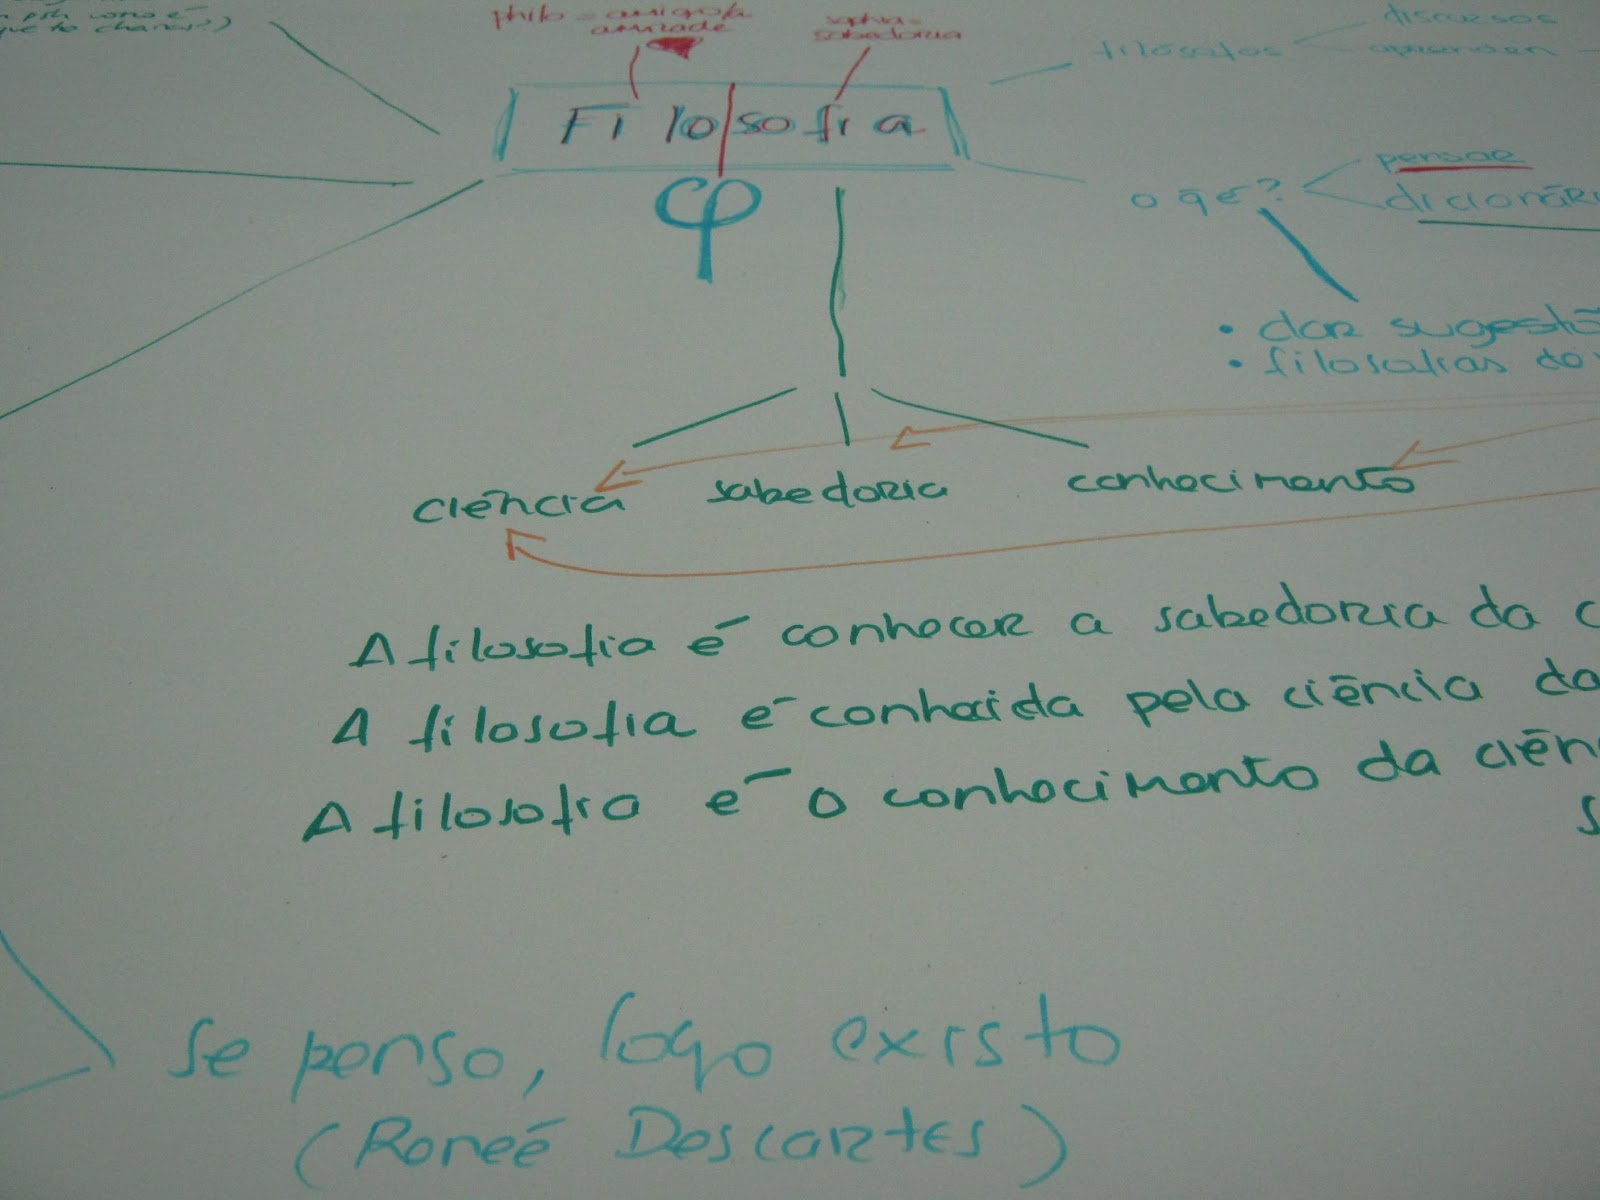 philo = amigo/a
amizade
sophia =
sabedoria
Filo|sofia
φ
filósofos
discursos
aprendem
o q é?
pensar
dicionári
• dar sugestõ
• filosofias do
ciência sabedoria conhecimento
A filosofia é conhecer a sabedoria da c
A filosofia é conhecida pela ciência da
A filosofia é o conhecimento da ciên
s
Se penso, logo existo
(Reneé Descartes)